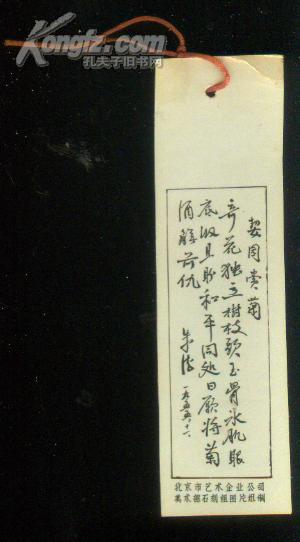 Kongfz.com
孔夫子旧书网
契园赏菊
奇花独立樹枝頭玉骨冰肌眼
底收且盼和平同处日愿将菊
酒解前仇
朱德
一九五五.十一.
北京市艺术企业公司
美术 石刻组图片组制